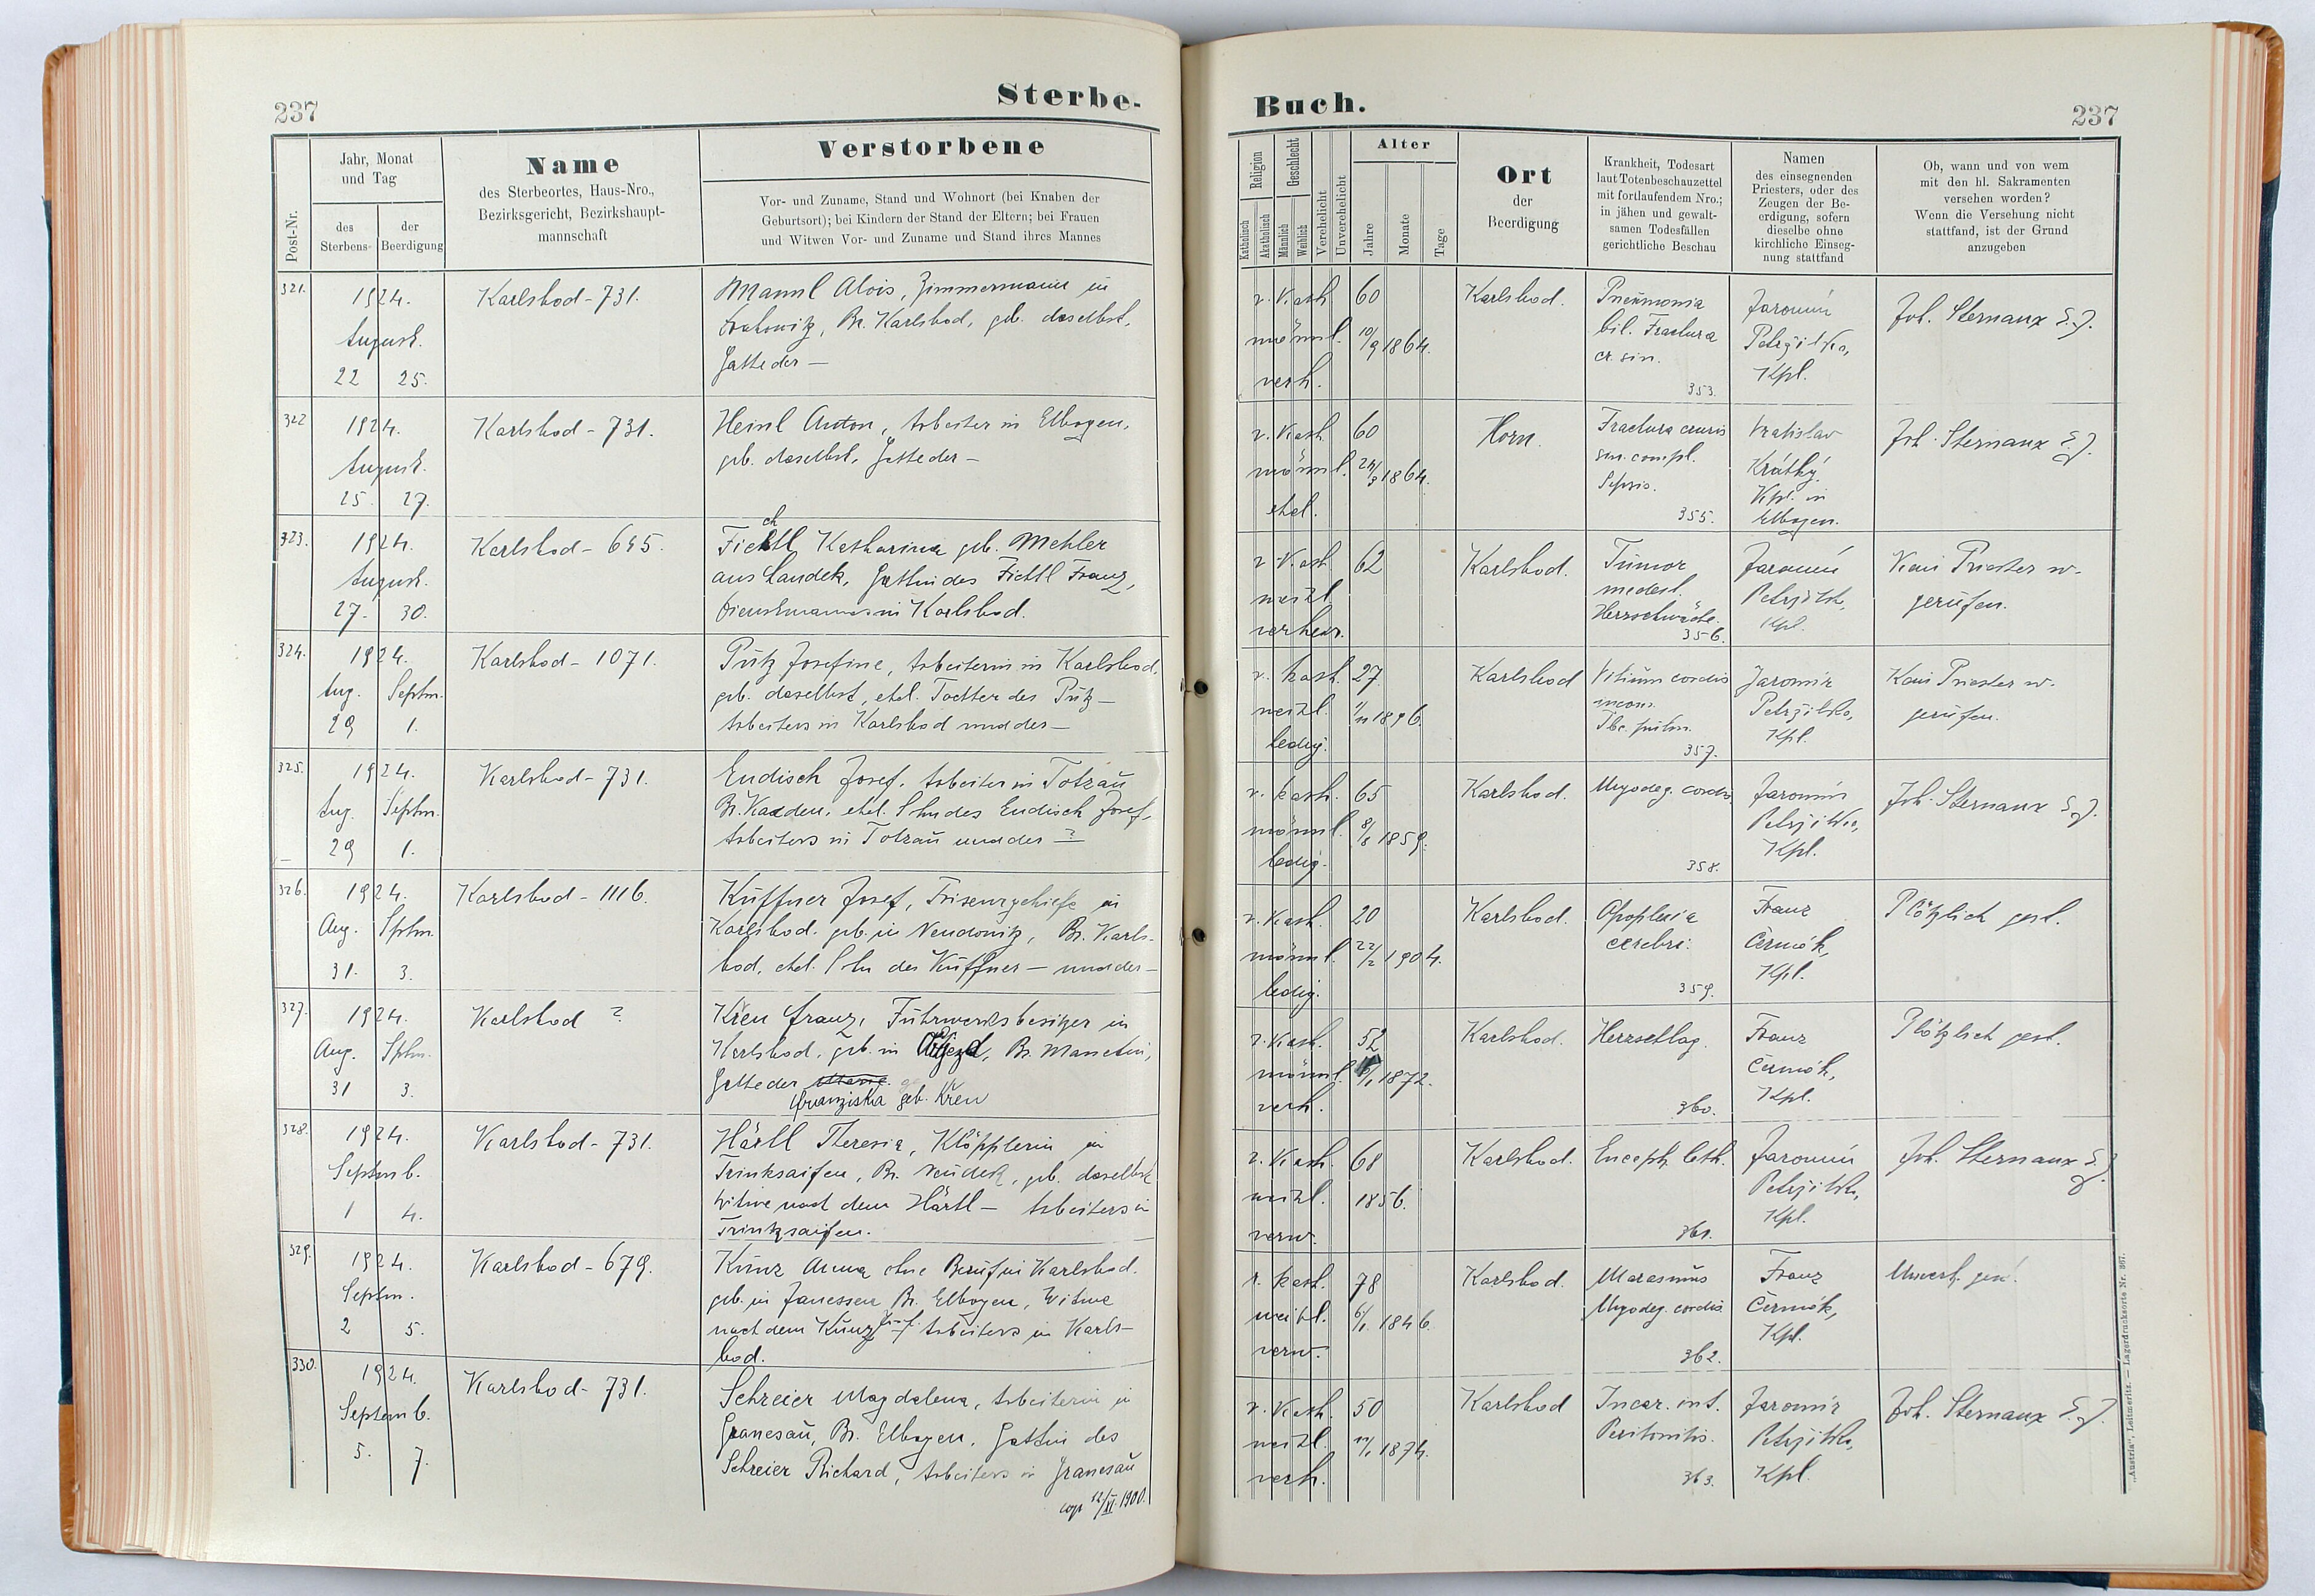 237
Sterbe-
Post-Nr.
Jahr, Monat
und Tag
des
Sterbens-
der
Beerdigung
Name
des Sterbeortes, Haus-Nro.,
Bezirksgericht, Bezirkshaupt-
mannschaft
Verstorbene
Vor- und Zuname, Stand und Wohnort (bei Knaben der
Geburtsort); bei Kindern der Stand der Eltern; bei Frauen
und Witwen Vor- und Zuname und Stand ihres Mannes
321.
1924.
August.
22 25.
Karlsbad - 731.
Mannl Alois, Zimmermann in
Br. Karlsbad, geb. daselbst,
Gatte der —
322
1924.
August.
25 27.
Karlsbad - 731.
Heinl Anton, Arbeiter in Elbogen,
geb. daselbst, Gatte der —
323.
1924.
August.
27. 30.
Karlsbad - 695.
ch
Fichtl Katharina geb. Mehler
aus Landek, Gattin des Fichtl Franz,
Dienstmannes in Karlsbad.
324.
1924.
Aug. Septm.
29 1.
Karlsbad - 1071.
Pütz Josefine, Arbeiterin in Karlsbad,
geb. daselbst, ehel. Tochter des Pütz —
Arbeiters in Karlsbad und der —
325.
1924.
Aug. Septm.
29 1.
Karlsbad - 731.
Endisch Josef, Arbeiter in Totzau
Br. Kaaden, ehel. Sohn des Endisch Josef,
Arbeiters in Totzau und der — ?
326.
1924.
Aug. Sptm.
31. 3.
Karlsbad - 1116.
Kuffner Josef, Friseurgehilfe in
Karlsbad. geb. in Neudonitz, Br. Karls-
bad, ehel. Sohn des Kuffner — und der —
327.
1924.
Aug. Sptm.
31 3.
Karlsbad ?
Křen Franz, Fuhrwerksbesitzer in
Karlsbad, geb. in Br. Manetin,
Gatte der
Franziska geb. Křen
328.
1924.
Septemb.
1 4.
Karlsbad - 731.
Härtl Theresia, Klöpplerin in
Trinksaifen, Br. Neudek, geb. daselbst
Witwe nach dem Härtl — Arbeiters in
Trinksaifen.
329.
1924.
Septm.
2 5.
Karlsbad - 679.
Kunz Anna ohne Beruf in Karlsbad.
geb. in Janessen Br. Elbogen, Witwe
nach dem Kunz Josef Arbeiters in Karls-
bad.
330.
1924.
Septemb.
5. 7.
Karlsbad - 731.
Schreier Magdalena, Arbeiterin in
Granesau, Br. Elbogen, Gattin des
Schreier Richard, Arbeiters in Granesau
cop 12/XI. 1900.
Buch.
237
Religion
Katholisch
Akatholisch
Geschlecht
Männlich
Weiblich
Verehelicht
Unverehelicht
Alter
Jahre
Monate
Tage
Ort
der
Beerdigung
Krankheit, Todesart
laut Totenbeschauzettel
mit fortlaufendem Nro.;
in jähen und gewalt-
samen Todesfällen
gerichtliche Beschau
Namen
des einsegnenden
Priesters, oder des
Zeugen der Be-
erdigung, sofern
dieselbe ohne
kirchliche Einseg-
nung stattfand
Ob, wann und von wem
mit den hl. Sakramenten
versehen worden?
Wenn die Versehung nicht
stattfand, ist der Grund
anzugeben
r. Kath.
männl.
verh.
60
10/9 1864.
Karlsbad.
Pneumonia
bil. Fractura
cr. sin.
353.
Jaromir
Petržilka,
Kpl.
Joh. Sternaux S.J.
r. Kath.
männl.
ehel.
60
24/3 1864.
Horn.
Fractura cruris
sin. compl.
Sepsis.
355.
Vratislav
Krátký.
Kpl. in
Elbogen.
Joh. Sternaux S.J.
r. Kath.
weibl.
verheir.
62
Karlsbad.
Tumor
mediast.
Herzschwäche.
356.
Jaromir
Petržilka,
Kpl.
Kein Priester w.
gerufen.
r. kath.
weibl.
ledig.
27
1/11 1896.
Karlsbad
Vitium cordis
incom.
Tbc. pulm.
357.
Jaromir
Petržilka,
Kpl.
Kein Priester w.
gerufen.
r. kath.
männl.
ledig.
65
8/8 1859.
Karlsbad.
Myodeg. cordis
358.
Jaromir
Petržilka,
Kpl.
Joh. Sternaux S.J.
r. Kath.
männl.
ledig.
20
22/2 1904.
Karlsbad.
Apoplexia
cerebri.
359.
Franz
Čermák,
Kpl.
Plötzlich gest.
r. Kath.
männl.
verh.
52
1872.
Karlsbad.
Herzschlag.
360.
Franz
Čermák,
Kpl.
Plötzlich gest.
r. Kath.
weibl.
verw.
68
1856.
Karlsbad.
Enceph. leth.
361.
Jaromir
Petržilka,
Kpl.
Joh. Sternaux S.J.
r. kath.
weibl.
verw.
78
6/1. 1846
Karlsbad.
Marasmus
Myodeg. cordis
362.
Franz
Čermák,
Kpl.
r. Kath.
weibl.
verh.
50
1874.
Karlsbad
Incar. int.
Peritonitis.
363.
Jaromir
Petržilka,
Kpl.
Joh. Sternaux S.J.
„Austria“, Leitmeritz. — Lagerdrucksorte Nr. 867.